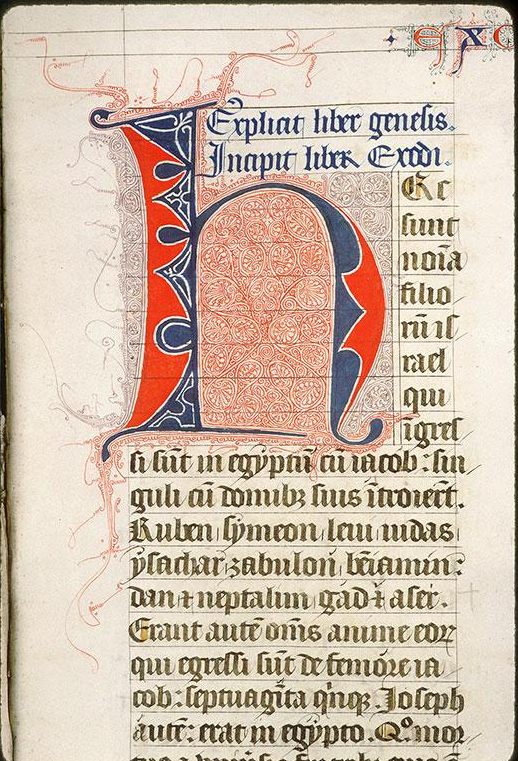 EXO
Explicit liber genesis.
Incipit liber Exodi.
Hec
sunt
noīa
filio
rū iſ
rael
qui
īgreſ
ſi sūt in egyptū cū iacob: ſin
guli cū domibꝫ ſuis ītroiert̄.
Ruben ſymeon leui iudas
yſachar zabulon beīamin:
dan ⁊ neptalim gad ⁊ aſer.
Erant autē om̄s anime eoꝝ
qui egreſſi sūt de femore ia
cob: ſeptuagīta qͥnqꝫ. Joſeph
autē: erat in egypto. Qͦ mor